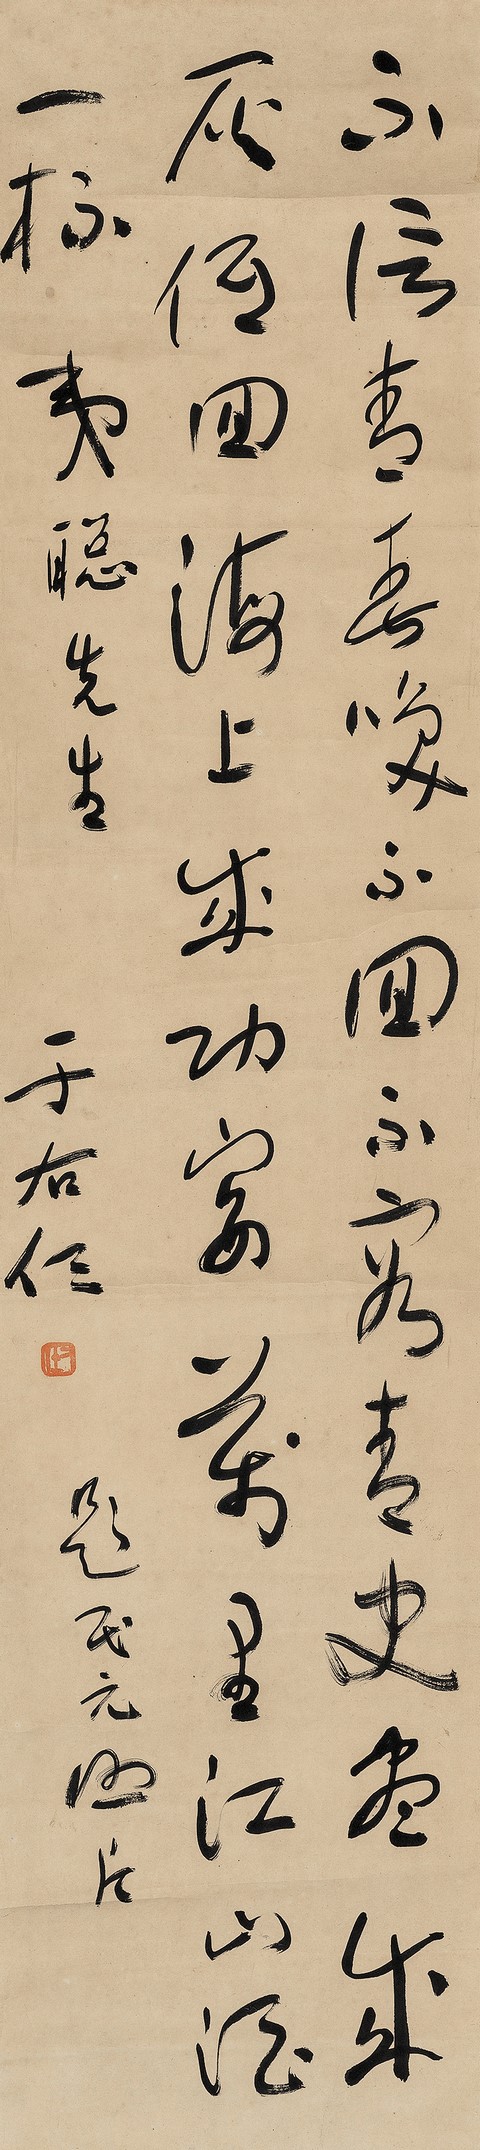 不信青春喚不回不容青史盡成
灰低回海上成功宴萬里江山酒
一杯 夷聰先生 于右任 題民元照片